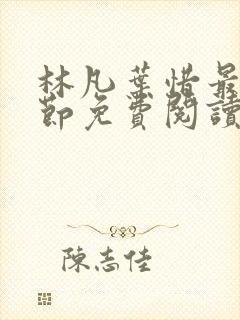 林凡葉惜最
節免費閱讀
陳志佳